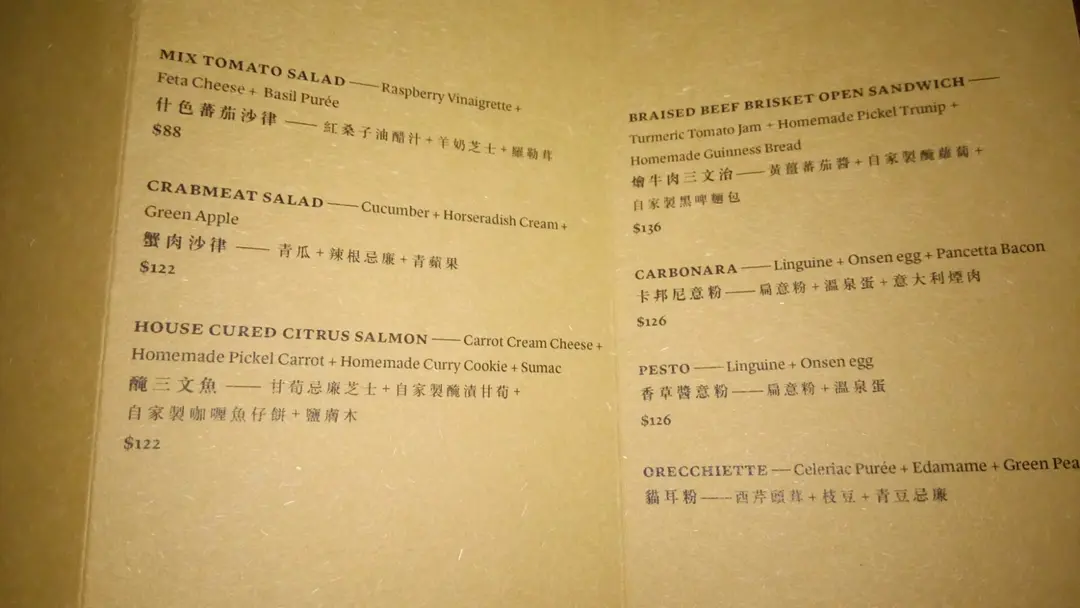 MIX TOMATO SALAD — Raspberry Vinaigrette +
Feta Cheese + Basil Purée
什色蕃茄沙律 — 紅桑子油醋汁 + 羊奶芝士 + 羅勒茸
$88
CRABMEAT SALAD — Cucumber + Horseradish Cream +
Green Apple
蟹肉沙律 — 青瓜 + 辣根忌廉 + 青蘋果
$122
HOUSE CURED CITRUS SALMON — Carrot Cream Cheese +
Homemade Pickel Carrot + Homemade Curry Cookie + Sumac
醃三文魚 — 甘荀忌廉芝士 + 自家製醃漬甘荀 +
自家製咖喱魚仔餅 + 鹽膚木
$122
BRAISED BEEF BRISKET OPEN SANDWICH —
Turmeric Tomato Jam + Homemade Pickel Trunip +
Homemade Guinness Bread
燴牛肉三文治 — 黃薑蕃茄醬 + 自家製醃蘿蔔 +
自家製黑啤麵包
$136
CARBONARA — Linguine + Onsen egg + Pancetta Bacon
卡邦尼意粉 — 扁意粉 + 溫泉蛋 + 意大利煙肉
$126
PESTO — Linguine + Onsen egg
香草醬意粉 — 扁意粉 + 溫泉蛋
$126
ORECCHIETTE — Celeriac Purée + Edamame + Green Pea
貓耳粉 — 西芹頭茸 + 枝豆 + 青豆忌廉